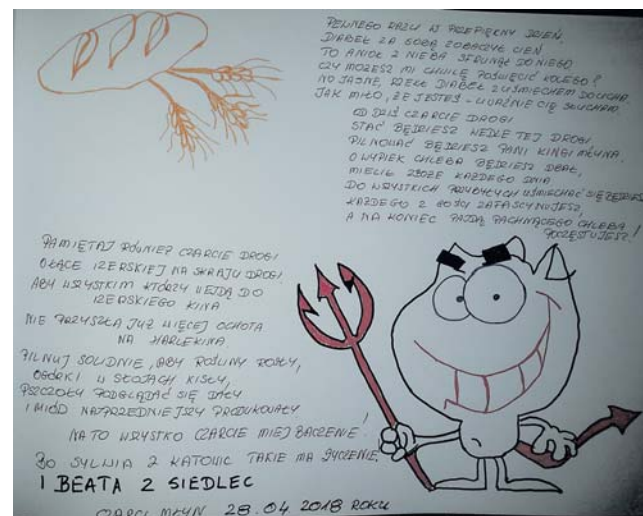 PEWNEGO RAZU W PRZEPIĘKNY DZIEŃ
DIABEŁ ZA SOBĄ ZOBACZYŁ CIEŃ
TO ANIOŁ Z NIEBA SFRUNĄŁ DO NIEGO
CZY MOŻESZ MI CHWILĘ POŚWIĘCIĆ KOLEGO?
NO JASNE, RZEKŁ DIABEŁ Z UŚMIECHEM DO UCHA,
JAK MIŁO, ŻE JESTEŚ - UWAŻNIE CIĘ SŁUCHAM.
OD DZIŚ CZARCIE DROGI
STAĆ BĘDZIESZ WEDLE TEJ DROGI
PILNOWAĆ BĘDZIESZ PANI KINGI MŁYNA.
O WYPIEK CHLEBA BĘDZIESZ DBAŁ,
MIELIŁ ZBOŻE KAŻDEGO DNIA
DO WSZYSTKICH PRZYBYŁYCH UŚMIECHAĆ SIĘ BĘDZIESZ
KAŻDEGO Z GOŚCI ZAFASCYNUJESZ,
A NA KONIEC PAJDĄ PACHNĄCEGO CHLEBA
POCZĘSTUJESZ!
PAMIĘTAJ RÓWNIEŻ CZARCIE DROGI
O ŁĄCE IZERSKIEJ NA SKRAJU DROGI.
ABY WSZYSTKIM KTÓRZY WEJDĄ DO
IZERSKIEGO KINA
NIE PRZYSZŁA JUŻ WIĘCEJ OCHOTA
NA HARLEKINA.
PILNUJ SOLIDNIE, ABY ROŚLINY ROSŁY,
OGÓRKI W STOJACH KISŁY,
PSZCZOŁY PODGLĄDAĆ SIĘ DAŁY
I MIÓD NAJPRZEDNIEJSZY PRODUKOWAŁY
NA TO WSZYSTKO CZARCIE MIEJ BACZENIE!
BO SYLWIA Z KATOWIC TAKIE MA ŻYCZENIE
I BEATA Z SIEDLEC
CZARCI MŁYN 28.04 2018 ROKU